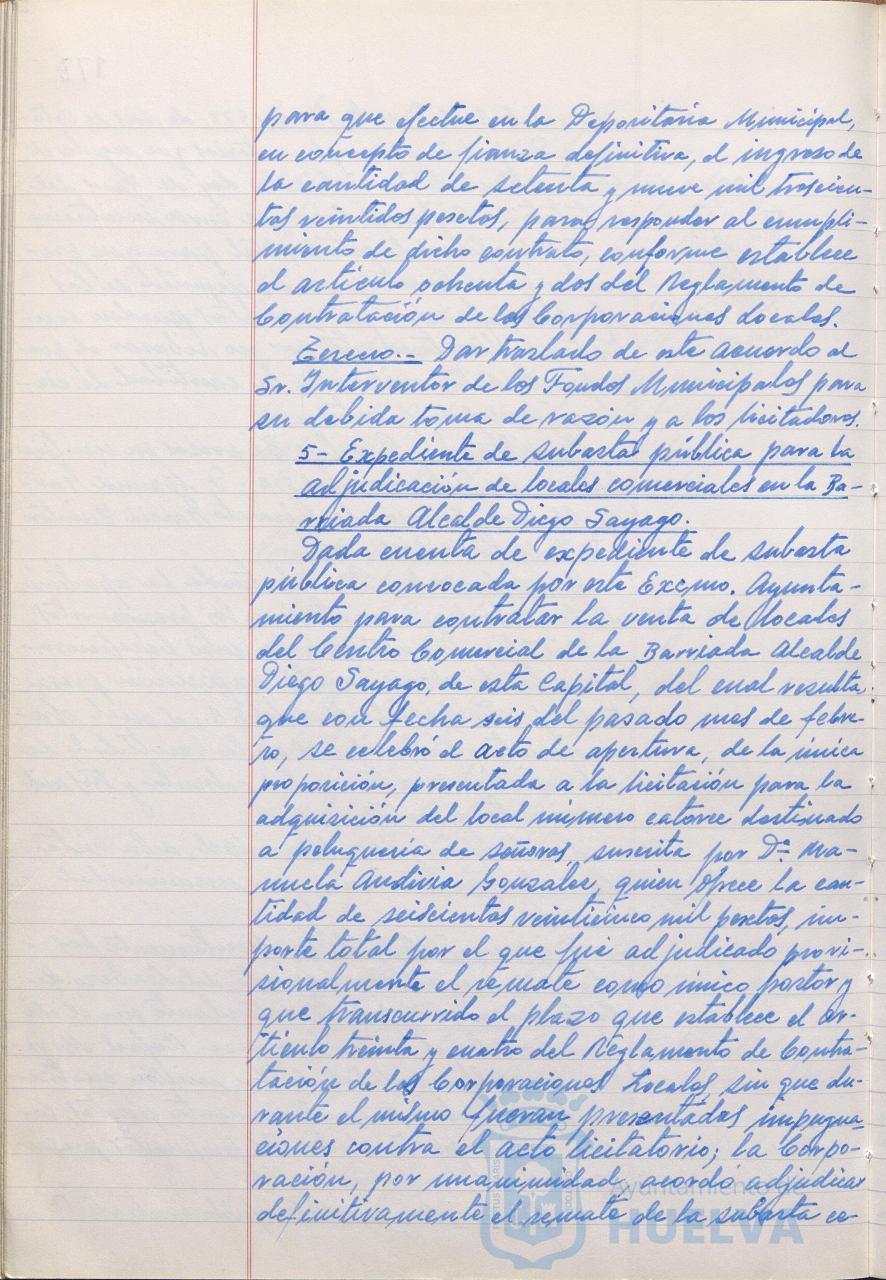 para que efectue en la Depositaria Municipal,
en concepto de fianza definitiva, el ingreso de
la cantidad de setenta y nueve mil trescien-
tas veintidos pesetas, para responder al cumpli-
miento de dicho contrato, conforme establece
el artículo ochenta y dos del Reglamento de
Contratación de las Corporaciones Locales.
Tercero.- Dar traslado de este acuerdo al
Sr. Interventor de los Fondos Municipales para
su debida toma de razón y a los licitadores.
5- Expediente de subasta pública para la
adjudicación de locales comerciales en la Ba-
rriada Alcalde Diego Sayago.
Dada cuenta de expediente de subasta
pública convocada por este Excmo. Ayunta-
miento para contratar la venta de locales
del Centro Comercial de la Barriada Alcalde
Diego Sayago, de esta Capital, del cual resulta,
que con fecha seis del pasado mes de febre-
ro, se celebró el acto de apertura, de la única
proposición, presentada a la licitación para la
adquisición del local número catorce destinado
a peluquería de señoras, suscrita por Dª. Ma-
nuela Andivia González, quien ofrece la can-
tidad de seiscientas veinticinco mil pesetas, im-
porte total por el que fue adjudicado, provi-
sionalmente el remate como único postor y
que transcurrido el plazo que establece el ar-
tículo treinta y cuatro del Reglamento de Contra-
tación de las Corporaciones Locales, sin que du-
rante el mismo fueran presentadas impugna-
ciones contra el acto licitatorio; la Corpo-
ración, por unanimidad, acordó adjudicar
definitivamente el remate de la subasta ce-
Ayuntamiento de
HUELVA